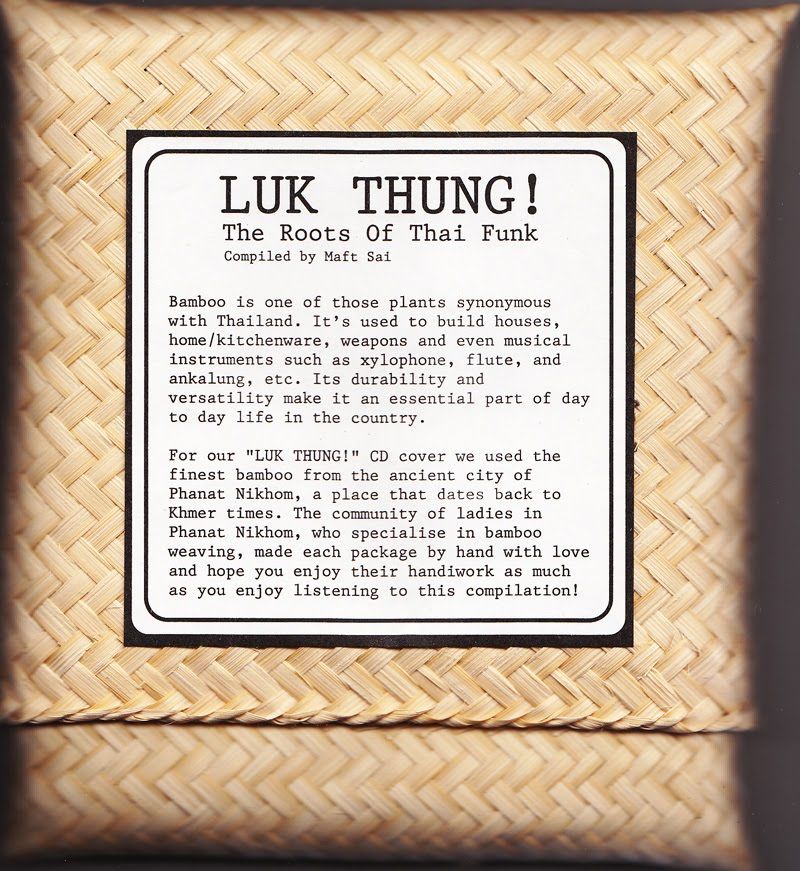 LUK THUNG!
The Roots Of Thai Funk
Compiled by Maft Sai
Bamboo is one of those plants synonymous
with Thailand. It's used to build houses,
home/kitchenware, weapons and even musical
instruments such as xylophone, flute, and
ankalung, etc. Its durability and
versatility make it an essential part of day
to day life in the country.
For our "LUK THUNG!" CD cover we used the
finest bamboo from the ancient city of
Phanat Nikhom, a place that dates back to
Khmer times. The community of ladies in
Phanat Nikhom, who specialise in bamboo
weaving, made each package by hand with love
and hope you enjoy their handiwork as much
as you enjoy listening to this compilation!